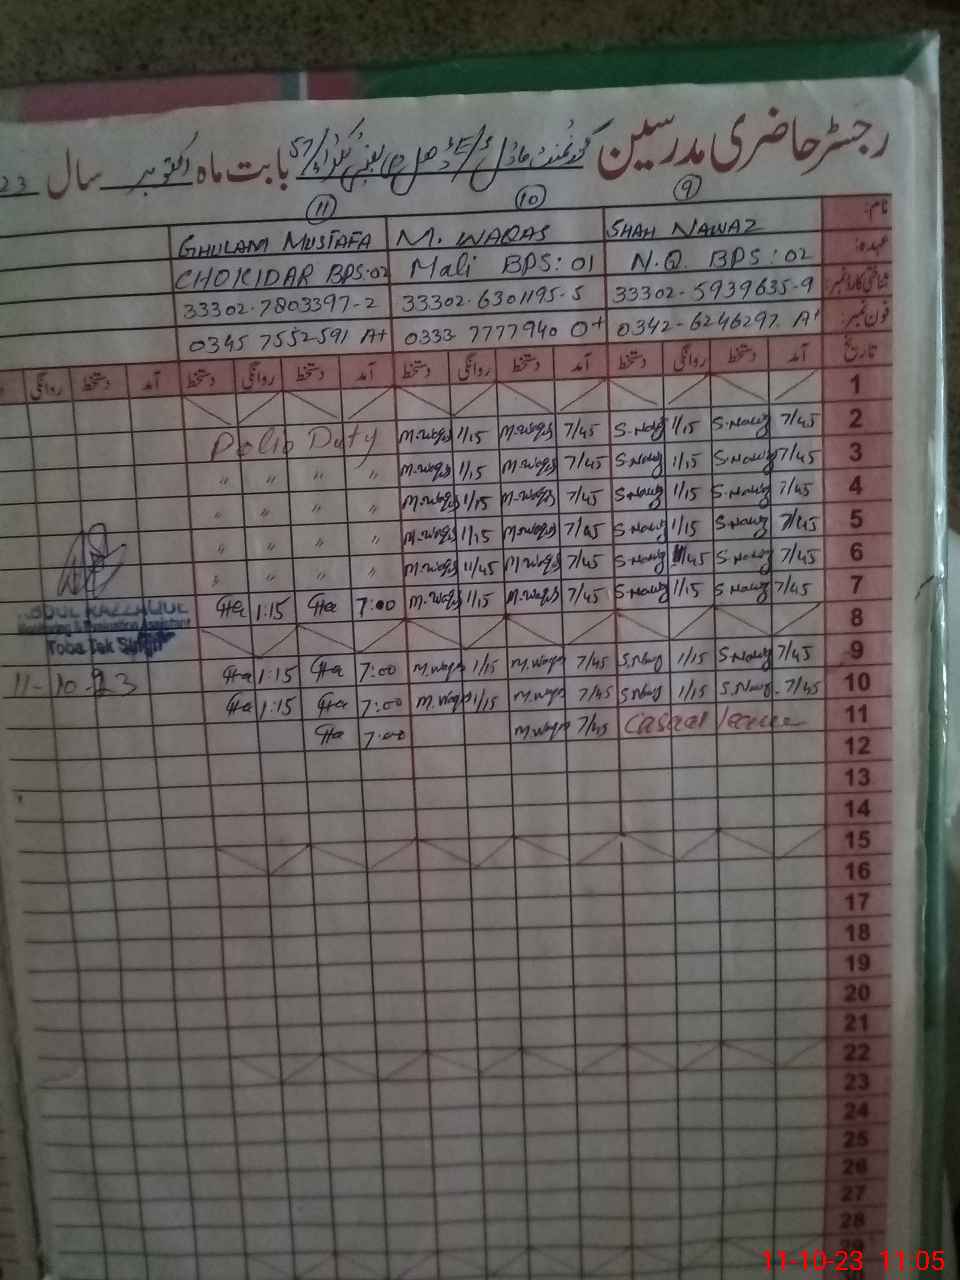 رجسٹر حاضری مدرسین گورنمنٹ ماڈل بابت ماہ اکتوبر سال 23
9 10 11
نام: SHAH NAWAZ M. WAQAS GHULAM MUSTAFA
عہدہ: N.Q. BPS: 02 Mali BPS: 01 CHOKIDAR BPS:02
شناختی کارڈ نمبر: 33302-5939635-9 33302-6301195-5 33302-7803397-2
فون نمبر: 0342-6246297 A+ 0333 7777940 O+ 0345 7552591 A+
تاریخ آمد دستخط روانگی دستخط آمد دستخط روانگی دستخط آمد دستخط روانگی دستخط آمد دستخط روانگی
1
2 7/45 S.Nawaz 1/15 S.Nawaz 7/45 M.Waqas 1/15 M.Waqas Polio Duty
3 7/45 S.Nawaz 1/15 S.Nawaz 7/45 M.Waqas 1/15 M.Waqas " " " "
4 7/45 S.Nawaz 1/15 S.Nawaz 7/45 M.Waqas 1/15 M.Waqas " " " "
5 7/45 S.Nawaz 1/15 S.Nawaz 7/45 M.Waqas 1/15 M.Waqas " " " "
6 7/45 S.Nawaz 11/45 S.Nawaz 7/45 M.Waqas 11/45 M.Waqas " " " "
7 7/45 S.Nawaz 1/15 S.Nawaz 7/45 M.Waqas 1/15 M.Waqas 7:00 1:15
8
9 7/45 S.Nawaz 1/15 S.Nawaz 7/45 M.Waqas 1/15 M.Waqas 7:00 1:15
10 7/45 S.Nawaz 1/15 S.Nawaz 7/45 M.Waqas 1/15 M.Waqas 7:00 1:15
11 Casual leave 7/45 M.Waqas 7:00
12
13
14
15
16
17
18
19
20
21
22
23
24
25
26
27
28
29
ABDUL RAZZAQ
Monitoring & Evaluation Assistant
Toba Tek Singh
11-10-23
11-10-23 11:05